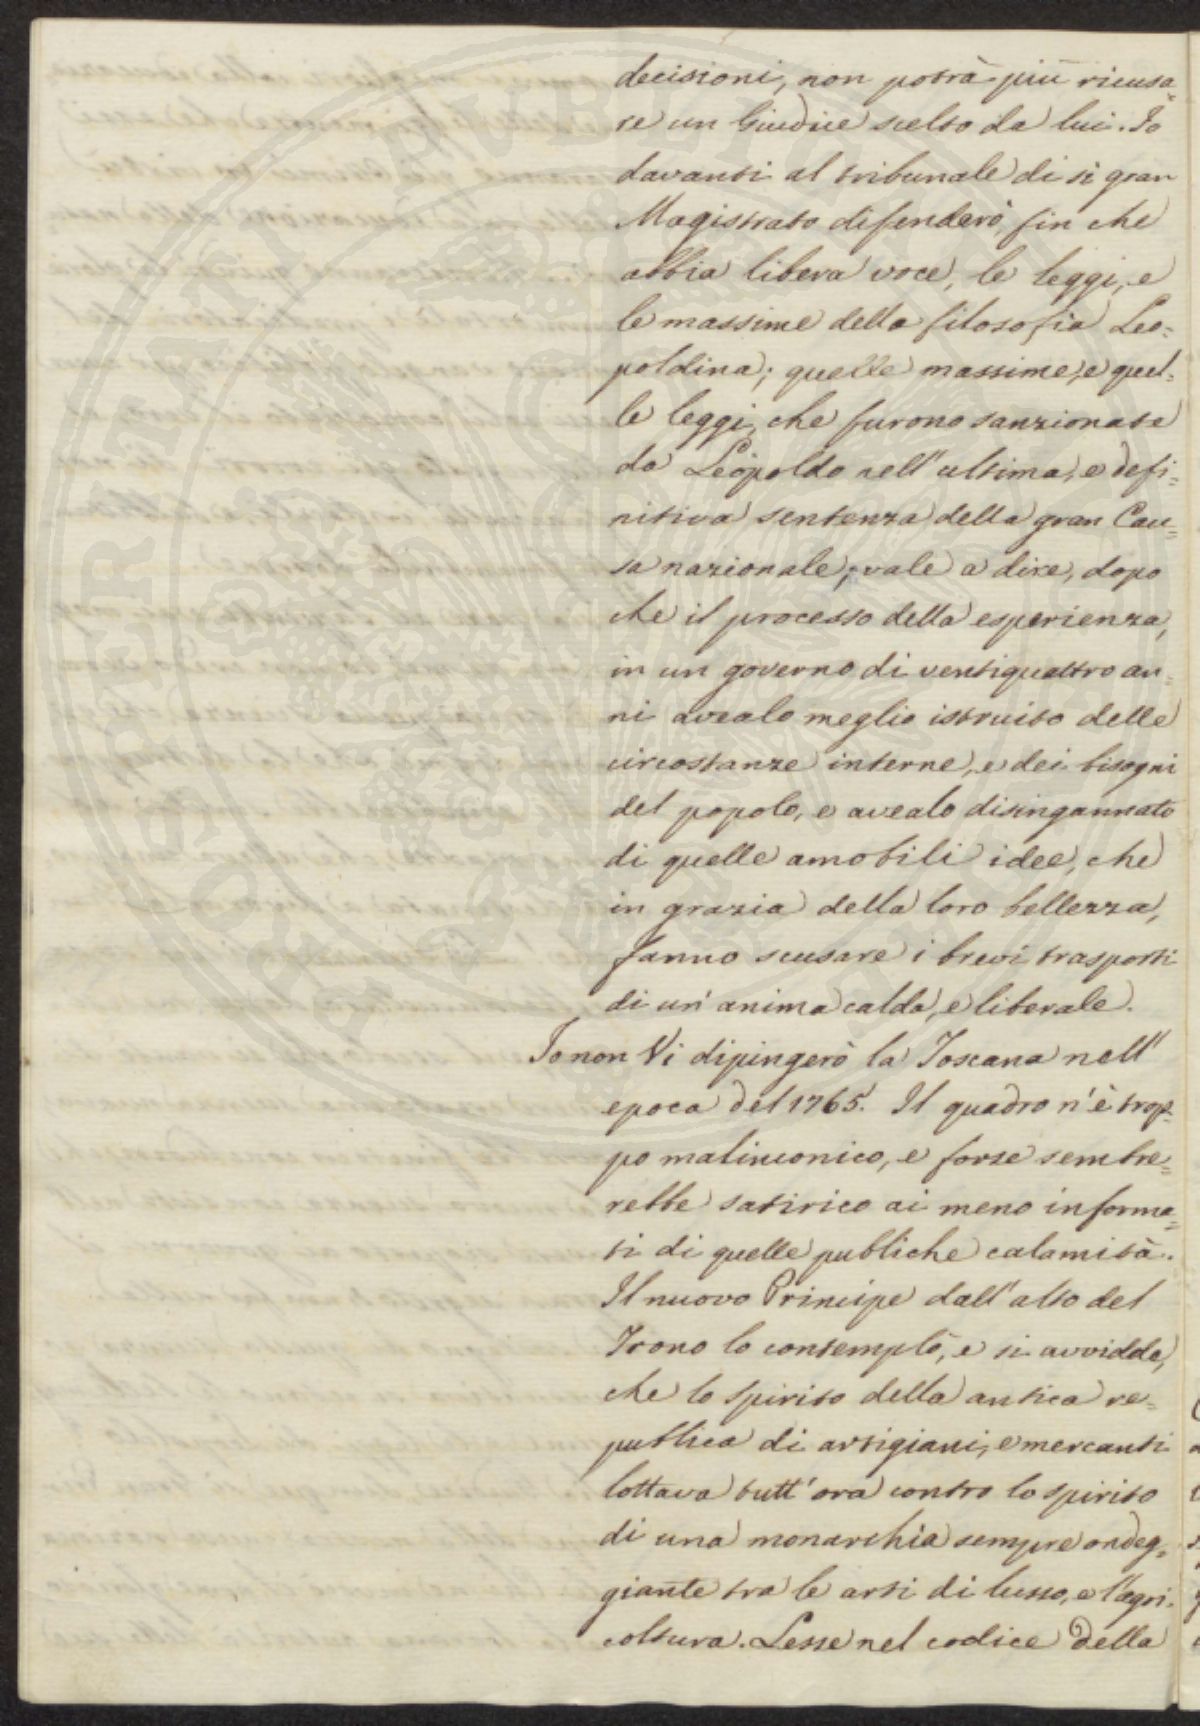 decisioni, non potrà più ricusa=
re un Giudice scelto da lui. Io
davanti al tribunale di sì gran
Magistrato difenderò, fin che
abbia libera voce, le leggi, e
le massime della filosofia Leo=
poldina; quelle massime, e quel=
le leggi, che furono sanzionate
da Leopoldo nell'ultima, e defi=
nitiva sentenza della gran Cau=
sa nazionale; vale a dire, dopo
che il processo della esperienza,
in un governo di ventiquattro an=
ni avealo meglio istruito delle
circostanze interne, e dei bisogni
del popolo, e avealo disingannato
di quelle amabili idee, che
in grazia della loro bellezza,
fanno scusare i brevi trasporti
di un'anima calda, e liberale.
Io non Vi dipingerò la Toscana nell'
epoca del 1765. Il quadro n'è trop=
po malinconico, e forse sembre=
rebbe satirico ai meno informa=
ti di quelle publiche calamità.
Il nuovo Principe dall'alto del
Trono lo contemplò, e si avvidde,
che lo spirito della antica re=
publica di artigiani, e mercanti
lottava tutt'ora contro lo spirito
di una monarchia sempre ondeg=
giante tra le arti di lusso, e l'agri=
coltura. Lesse nel codice della